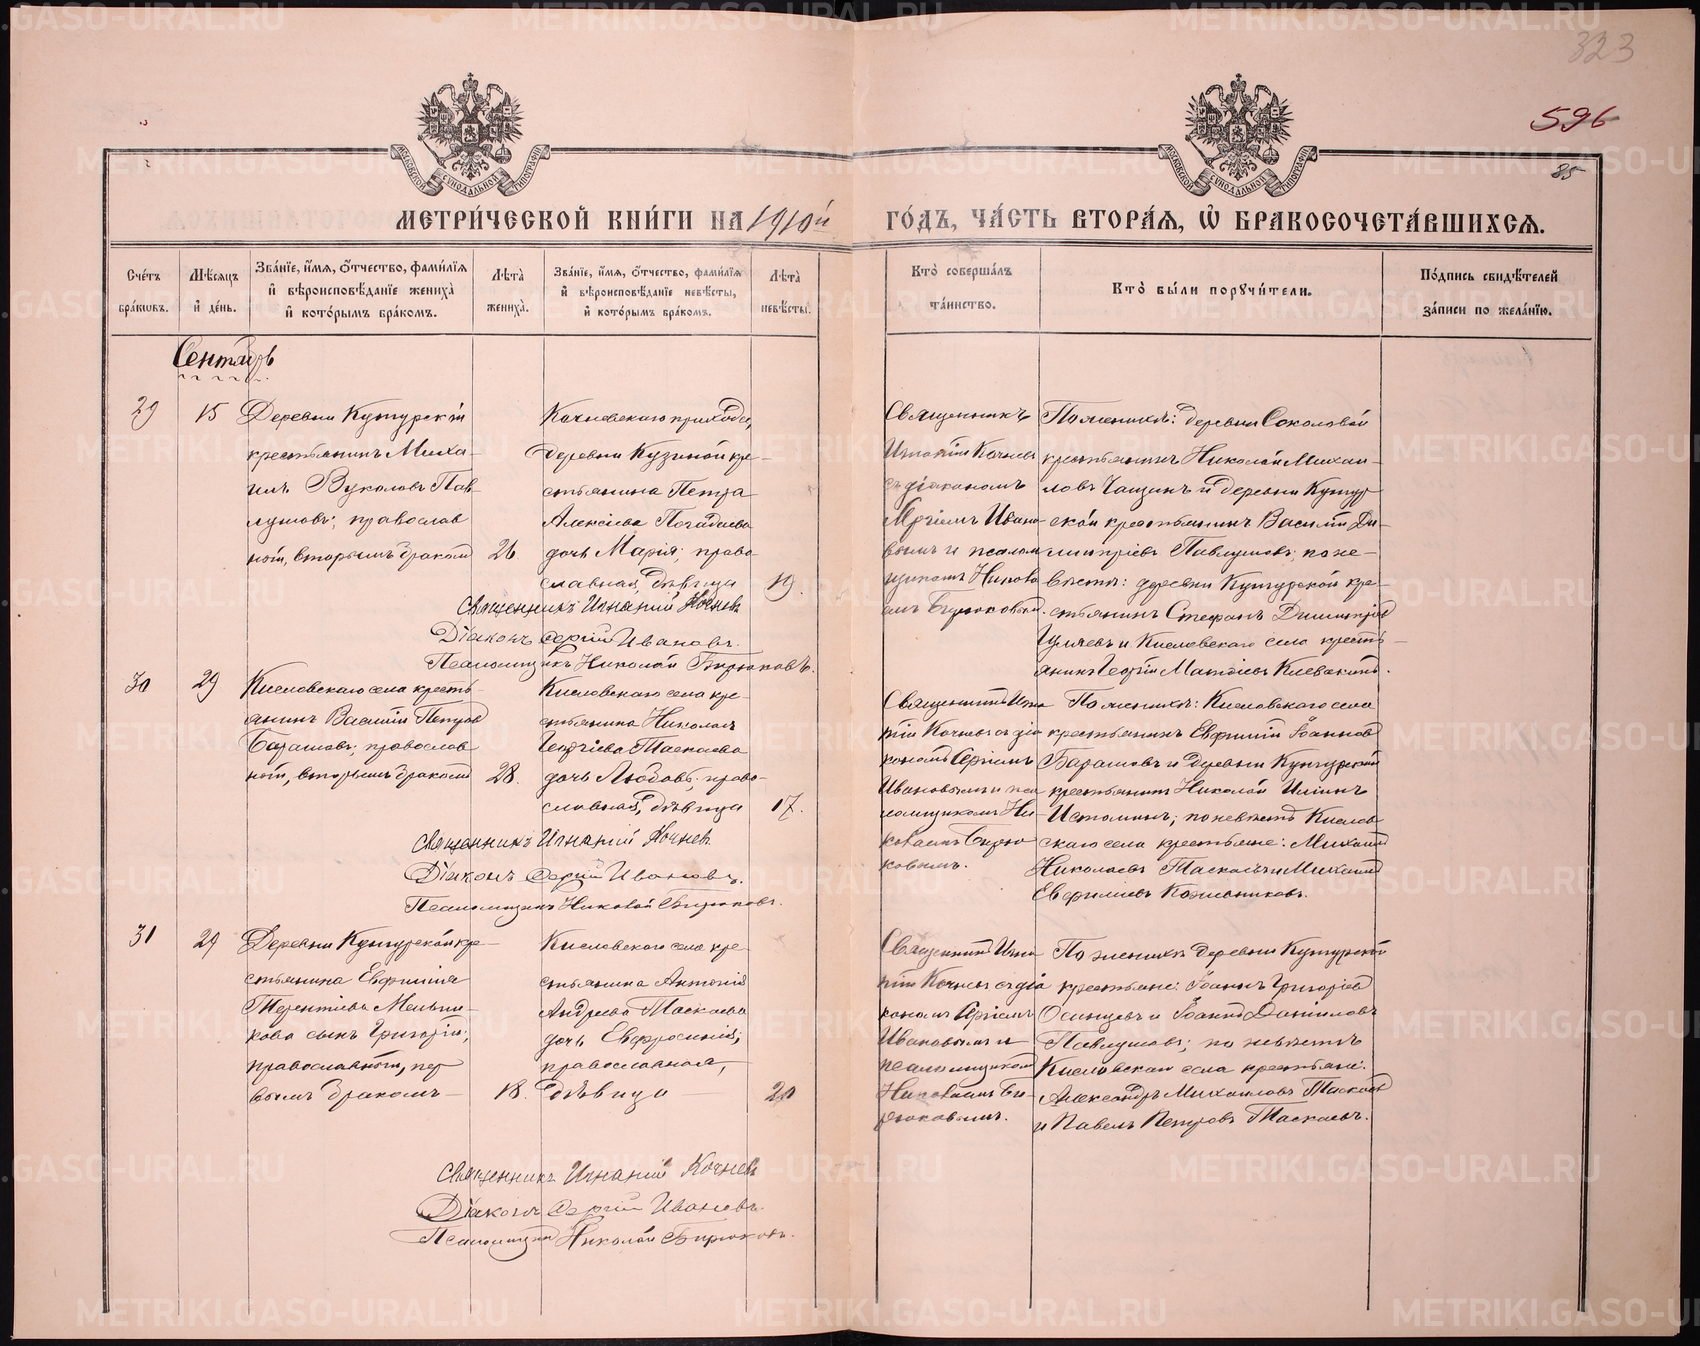 323
596
85
МОСКОВСКОЙ СѴНОДАЛЬНОЙ ТИПОГРАФІИ
МОСКОВСКОЙ СѴНОДАЛЬНОЙ ТИПОГРАФІИ
МЕТРИ́ЧЕСКОЙ КНИ́ГИ НА 1910й ГО́ДЪ, ЧА́СТЬ ВТОРА́Я, Ѽ БРАКОСОЧЕТА́ВШИХСЯ.
Сче́тъ бра́ковъ.
Мѣ́сяцъ и҆ де́нь.
Зва́нїе, и҆́мя, ѻ҆́тчество, фами́лїя и҆ вѣроисповѣ́данїе жениха̀ и҆ кото́рымъ бра́комъ.
Лѣ́та̀ жениха̀.
Зва́нїе, и҆́мя, ѻ҆́тчество, фами́лїя и҆ вѣроисповѣ́данїе невѣ́сты, и҆ кото́рымъ бра́комъ.
Лѣ́та̀ невѣ́сты.
Кто̀ соверша́лъ та́инство.
Кто̀ бы́ли порꙋчи́тели.
По́дпись свидѣ́телей за́писи по жела́нїю.
Сентябрь
29
15
Деревни Кунгурской
крестьянинъ Миха-
илъ Вуколовъ Пав-
лушовъ; православ
ной, вторымъ бракомъ
26
Кочневскаго прихода,
деревни Кузиной кре-
стьянина Петра
Алексіева Погадаева
дочь Марія; право
славная, дѣвица
19.
Священникъ
Игнатій Кочневъ
съ діакономъ
Сергіемъ Ивано-
вымъ и псалом
щикомъ Никола
емъ Бирюковымъ.
По женихѣ: деревни Соколовой
крестьянинъ Николай Михаи-
ловъ Чащинъ и деревни Кунгур
ской крестьянинъ Василій Ди-
митріевъ Павлушовъ; по не-
вѣстѣ: деревни Кунгурской кре-
стьянинъ Стефанъ Димитріевъ
и Кисловскаго села кресть-
янинъ Георгій
Священникъ Игнатий Кочневъ
Діаконъ Сергий Ивановъ.
Псаломщикъ Николай Бирюковъ.
30
29
Кисловскаго села кресть-
янинъ Василій Петровъ
Барашовъ; православ
ной, вторымъ бракомъ
28.
Кисловскаго села кре-
стьянина Николая
Георгіева Таскаева
дочь Любовь; право-
славная, дѣвица
17.
Священникъ Игна
тій Кочневъ съ діа
кономъ Сергіемъ
Ивановымъ и пса
ломщикомъ Ни-
колаемъ Бирю
ковымъ.
По женихѣ: Кисловскаго села
крестьянинъ Евфимій Іоанновъ
Барашовъ и деревни Кунгурской
крестьянинъ Николай Иліинъ
Истоминъ; по невѣстѣ Кислов
скаго села крестьяне: Михаилъ
Николаевъ Таскаевъ и Михаилъ
Евфиміевъ Кожевниковъ.
Священникъ Игнатий Кочнев
Діаконъ Сергий Ивановъ.
Псаломщикъ Николай Бирюковъ.
31
29
Деревни Кунгурской кре-
стьянина Евфимія
Терентіева Меньши-
кова сынъ Григорій;
православной, пер
вымъ бракомъ
18.
Кисловскаго села кре
стьянина Антонія
Андреева Таскаева
дочь Евфросинія;
православная,
дѣвица
20
Священникъ Игна
тій Кочневъ съ діа
кономъ Сергіемъ
Ивановымъ и
псаломщикомъ
Николаемъ Би-
рюковымъ.
По женихѣ деревни Кунгурской
крестьяне: Іоаннъ Григоріевъ
Осинцевъ и Іоаннъ Даніиловъ
Павлушовъ; по невѣстѣ
Кисловскаго села крестьяне:
Александръ Михаиловъ Таскаевъ
и Павелъ Петровъ Таскаевъ.
Священникъ Игнатий Кочневъ
Діаконъ Сергий Ивановъ.
Псаломщикъ Николай Бирюковъ.
METRIKI.GASO-URAL.RU